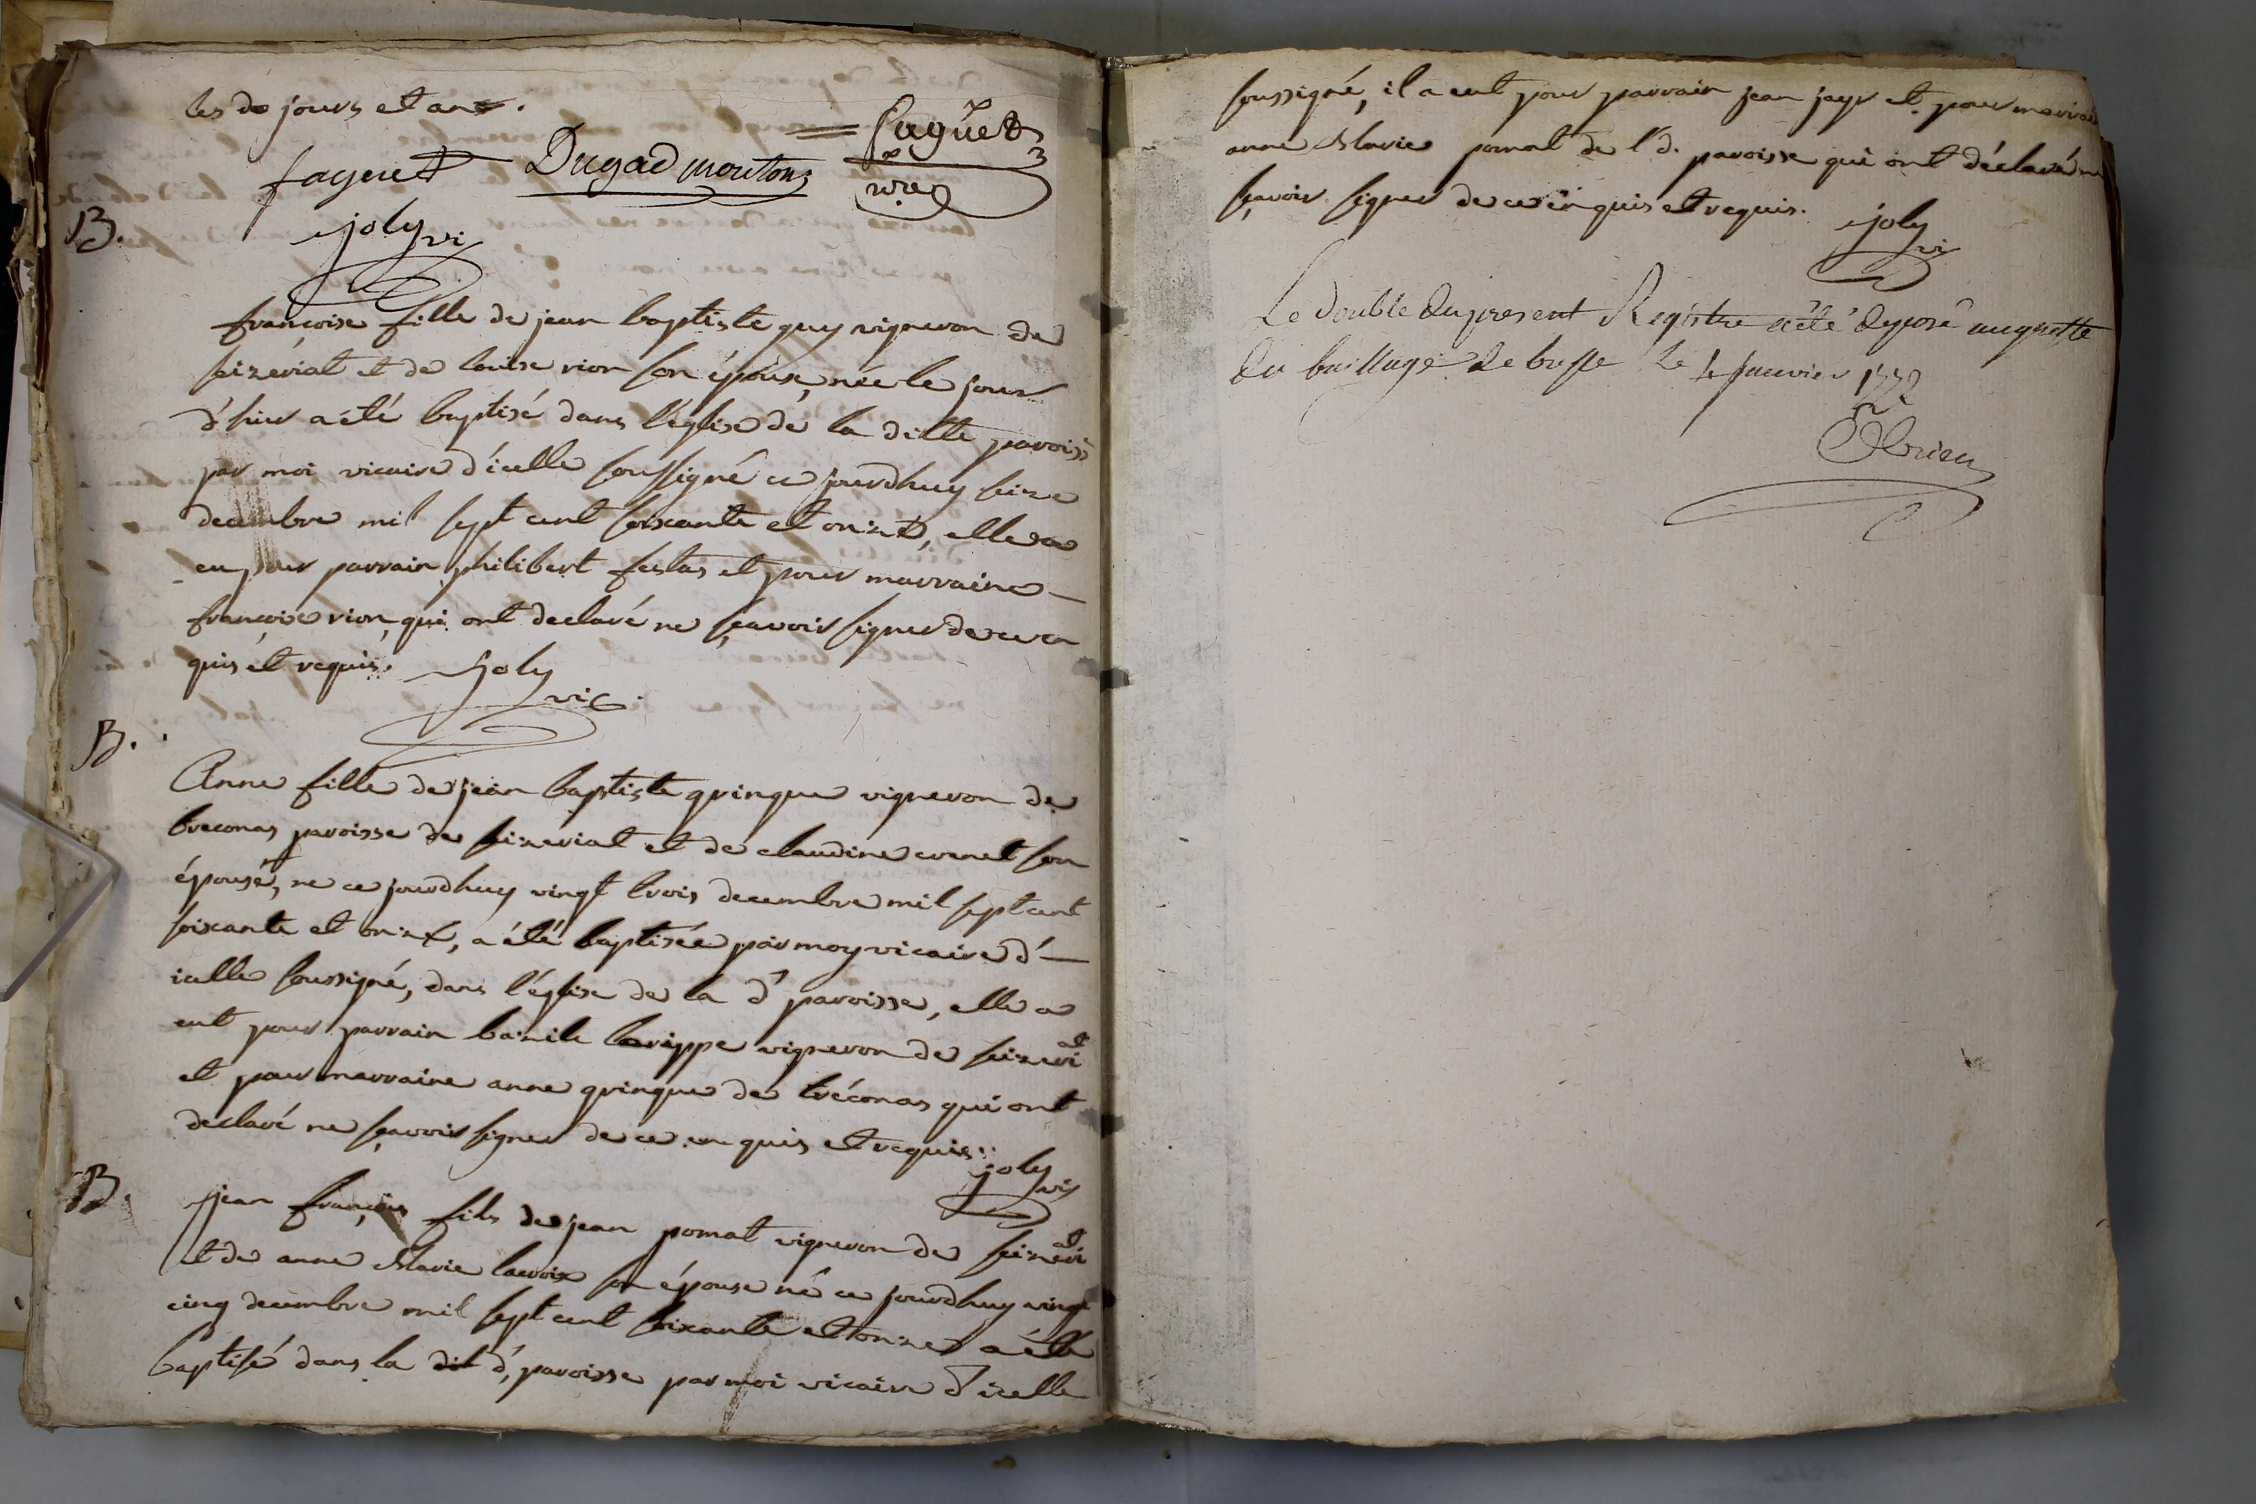 les d. jours et an.
faguet Dugad mouton Faguet
nore
B.
joly vi
françoise fille de jean baptiste guy vigneron de
seizeriat et de louise rion son épouse, née le jour
d'hier a été baptisé dans l'église de la ditte paroisse
par moi vicaire d'icelle soussigné ce jourdhuy seize
decembre mil sept cent soixante et onze, elle a
eu pour parrain philibert festas et pour marraine
françoise rion, qui ont declaré ne sçavoir signer de ce en
quis et requis. joly
vic
B.
Anne fille de jean baptiste gringue vigneron de
treconas paroisse de seizeriat et de claudine evenet son
épouse, ne ce jourdhuy vingt trois decembre mil sept cent
soixante et onze, a été baptisée par moy vicaire d'
icelle soussigné, dans l'église de la d. paroisse, elle a
eut pour parrain bazile vigneron de seizeriat
et pour marraine anne gringue de tréconas qui ont
declaré ne sçavoir signer de ce en quis et requis. joly
vi
B.
jean françois fils de jean pomat vigneron de seizeriat
et de anne Marie lacroix son épouse né ce jourdhuy vingt
cinq decembre mil sept cent soixante et onze a été
baptisé dans la d. paroisse par moi vicaire d'icelle
soussigné, il a eut pour parrain jean jayr et pour marraine
anne Marie pomat de l. d. paroisse qui ont déclaré ne
sçavoir signer de ce enquis et requis. joly
vi
Le double du present Registre a été deposé au greffe
du baillage de bresse le 4 janvier 1772